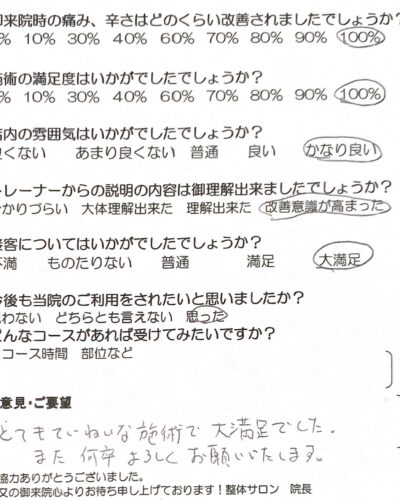 来院時の痛み、辛さはどのくらい改善されましたでしょうか?
% 10% 30% 40% 60% 70% 80% 90% 100%
術の満足度はいかがでしたでしょうか?
% 10% 30% 40% 60% 70% 80% 90% 100%
内の雰囲気はいかがでしたでしょうか?
くない あまり良くない 普通 良い かなり良い
レーナーからの説明の内容は御理解出来ましたでしょうか?
かりづらい 大体理解出来た 理解出来た 改善意識が高まった
客についてはいかがでしたでしょうか?
満 ものたりない 普通 満足 大満足
後も当院のご利用をされたいと思いましたか?
わない どちらとも言えない 思った
んなコースがあれば受けてみたいですか?
コース時間 部位など
意見・ご要望
とてもていねいな施術で大満足でした。
また何卒よろしくお願いいたします。
協力ありがとうございました。
又の御来院心よりお待ち申し上げております!整体サロン 院長